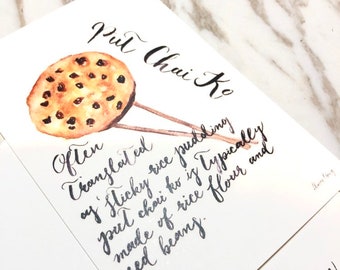 Put Chai Ko
Often
Translated
as "Sticky rice pudding
put chai ko is Typically
made of rice flour and
red beans.